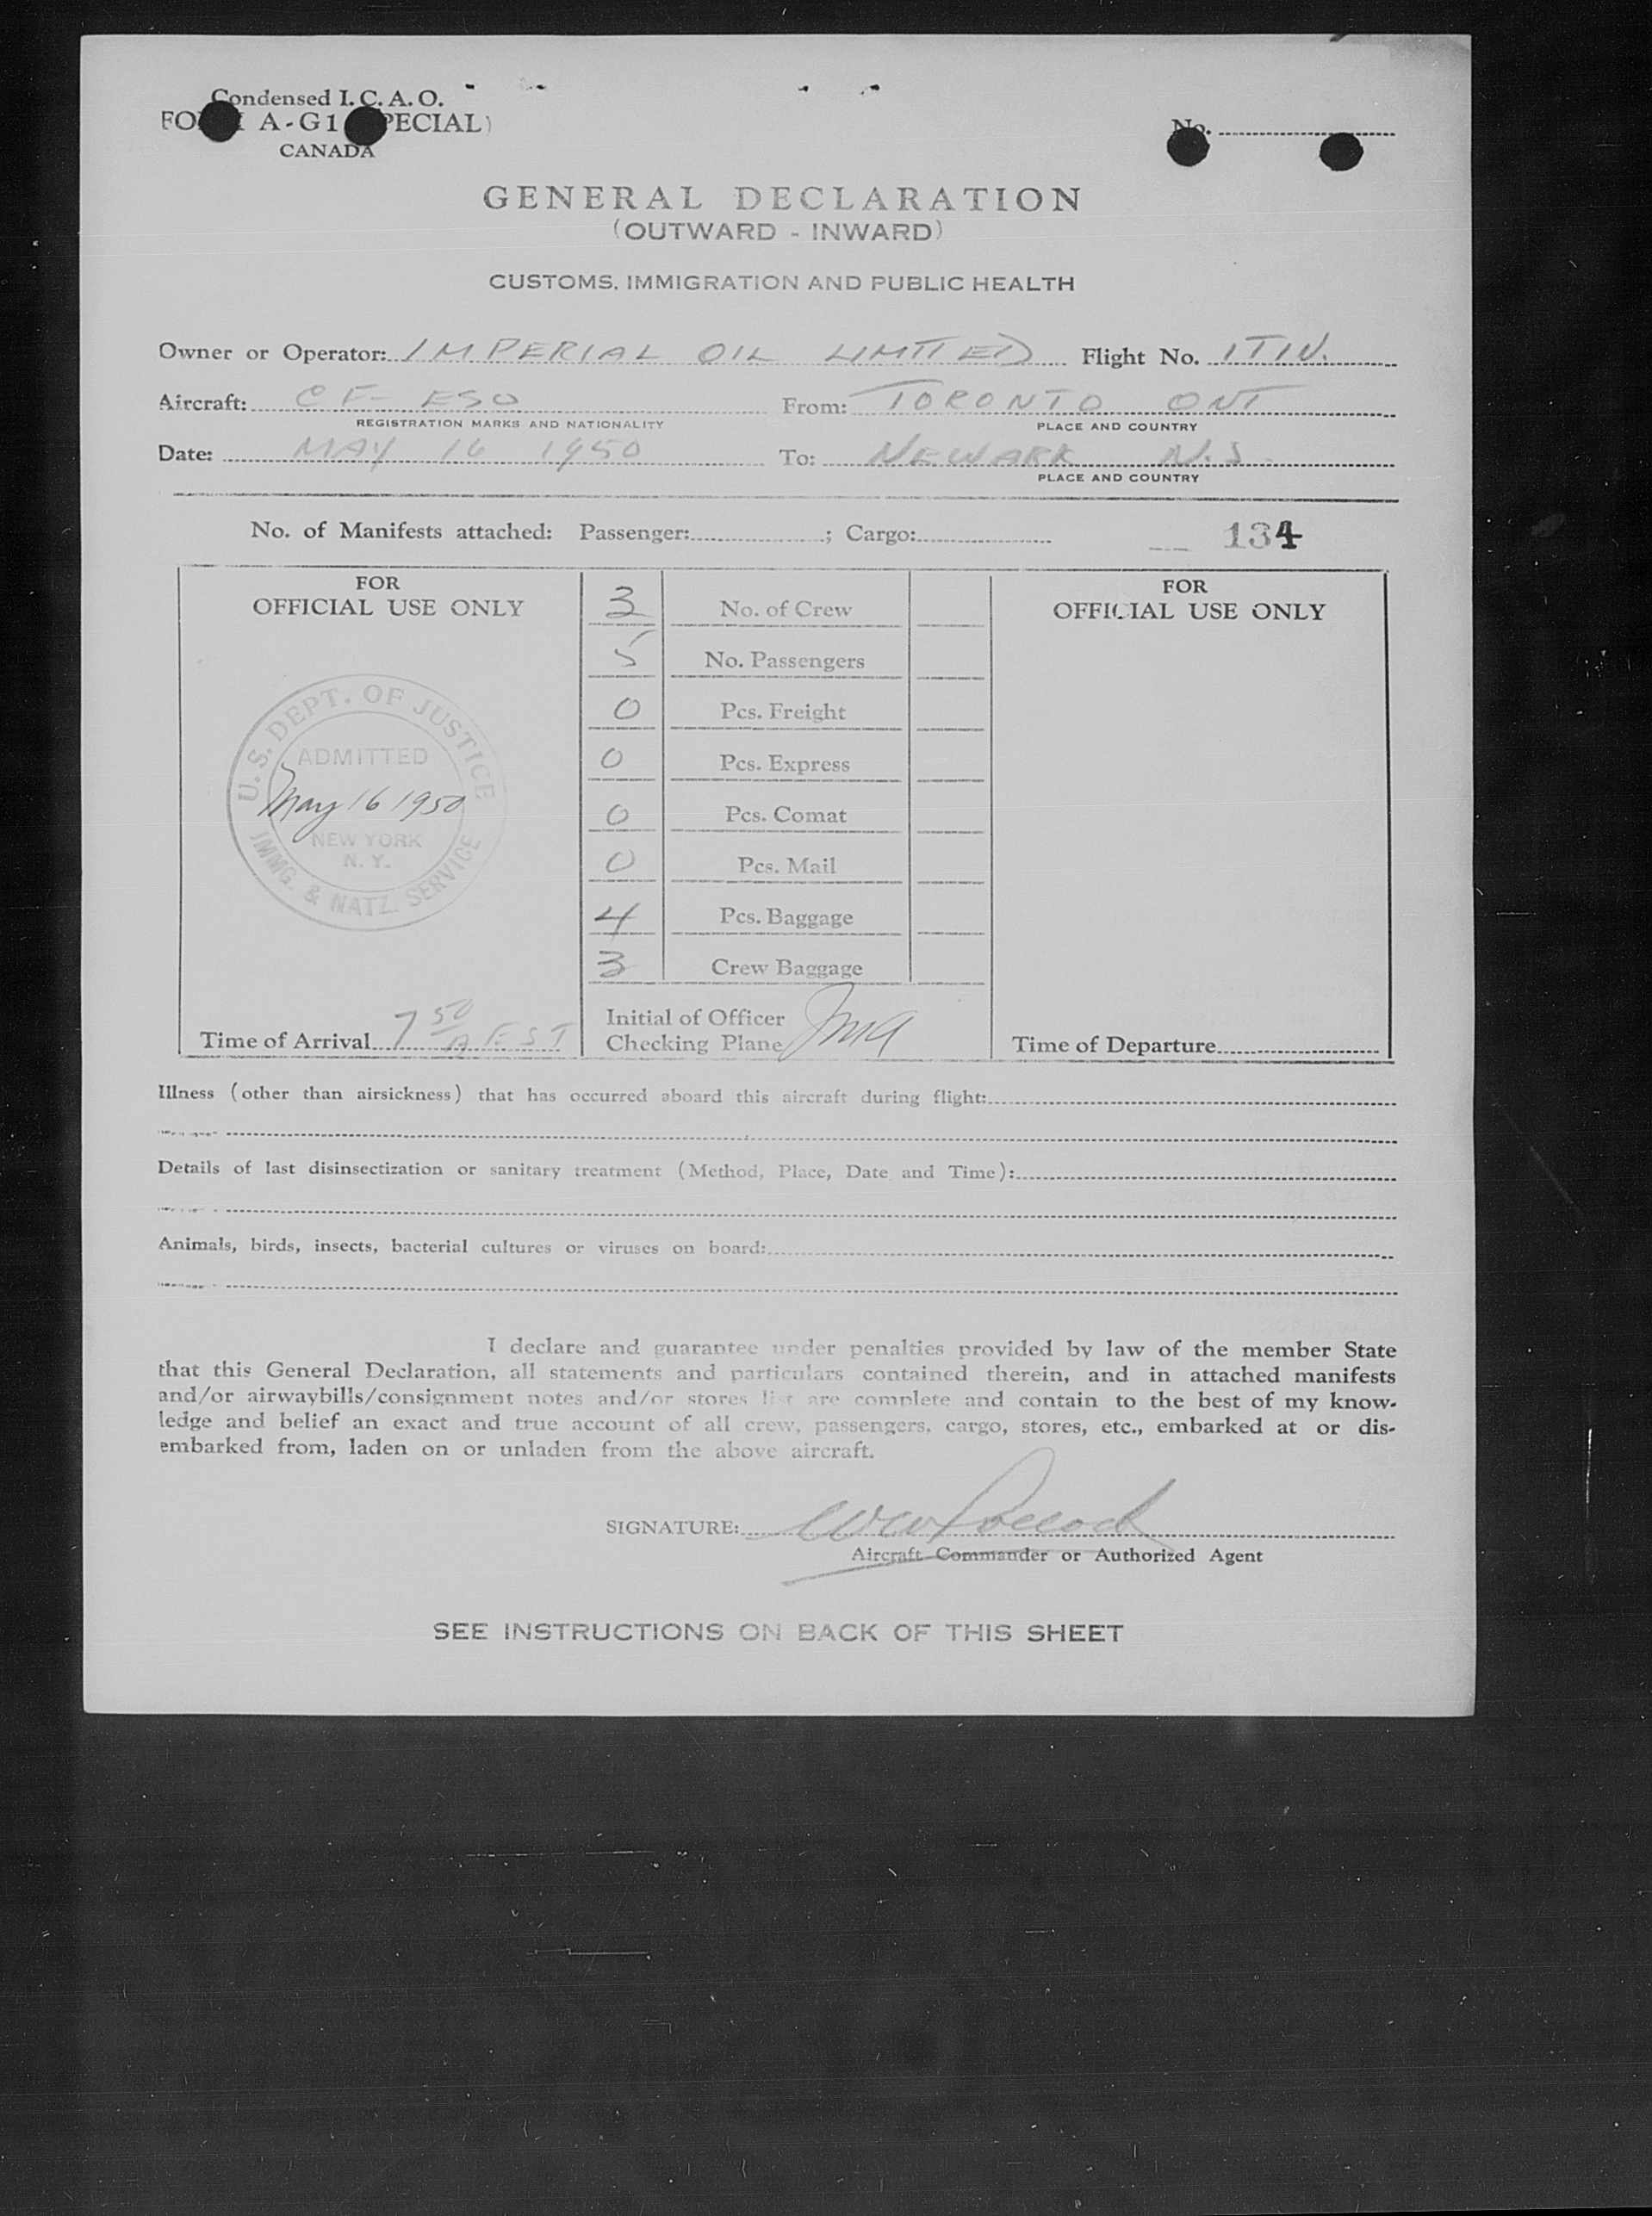 Condensed I. C. A. O.
A-G1
CANADA
No.
GENERAL DECLARATION
(OUTWARD - INWARD)
CUSTOMS, IMMIGRATION AND PUBLIC HEALTH
Owner or Operator: IMPERIAL OIL LIMITED Flight No. ITIN.
Aircraft: CF- ESO From: TORONTO ONT
REGISTRATION MARKS AND NATIONALITY PLACE AND COUNTRY
Date: MAY 16 1950 To: NEWARK N.J.
PLACE AND COUNTRY
No. of Manifests attached: Passenger: ; Cargo: 134
FOR
OFFICIAL USE ONLY
U.S. DEPT. OF JUSTICE
ADMITTED
May 16 1950
NEW YORK
N. Y.
IMMG. & NATZ. SERVICE
Time of Arrival 7 50 A EST
3 No. of Crew
5 No. Passengers
0 Pcs. Freight
0 Pcs. Express
0 Pcs. Comat
0 Pcs. Mail
4 Pcs. Baggage
3 Crew Baggage
Initial of Officer
Checking Plane
FOR
OFFICIAL USE ONLY
Time of Departure
Illness (other than airsickness) that has occurred aboard this aircraft during flight:
Details of last disinsectization or sanitary treatment (Method, Place, Date and Time):
Animals, birds, insects, bacterial cultures or viruses on board:
I declare and guarantee under penalties provided by law of the member State
that this General Declaration, all statements and particulars contained therein, and in attached manifests
and/or airwaybills/consignment notes and/or stores list are complete and contain to the best of my know-
ledge and belief an exact and true account of all crew, passengers, cargo, stores, etc., embarked at or dis-
embarked from, laden on or unladen from the above aircraft.
SIGNATURE:
Aircraft Commander or Authorized Agent
SEE INSTRUCTIONS ON BACK OF THIS SHEET